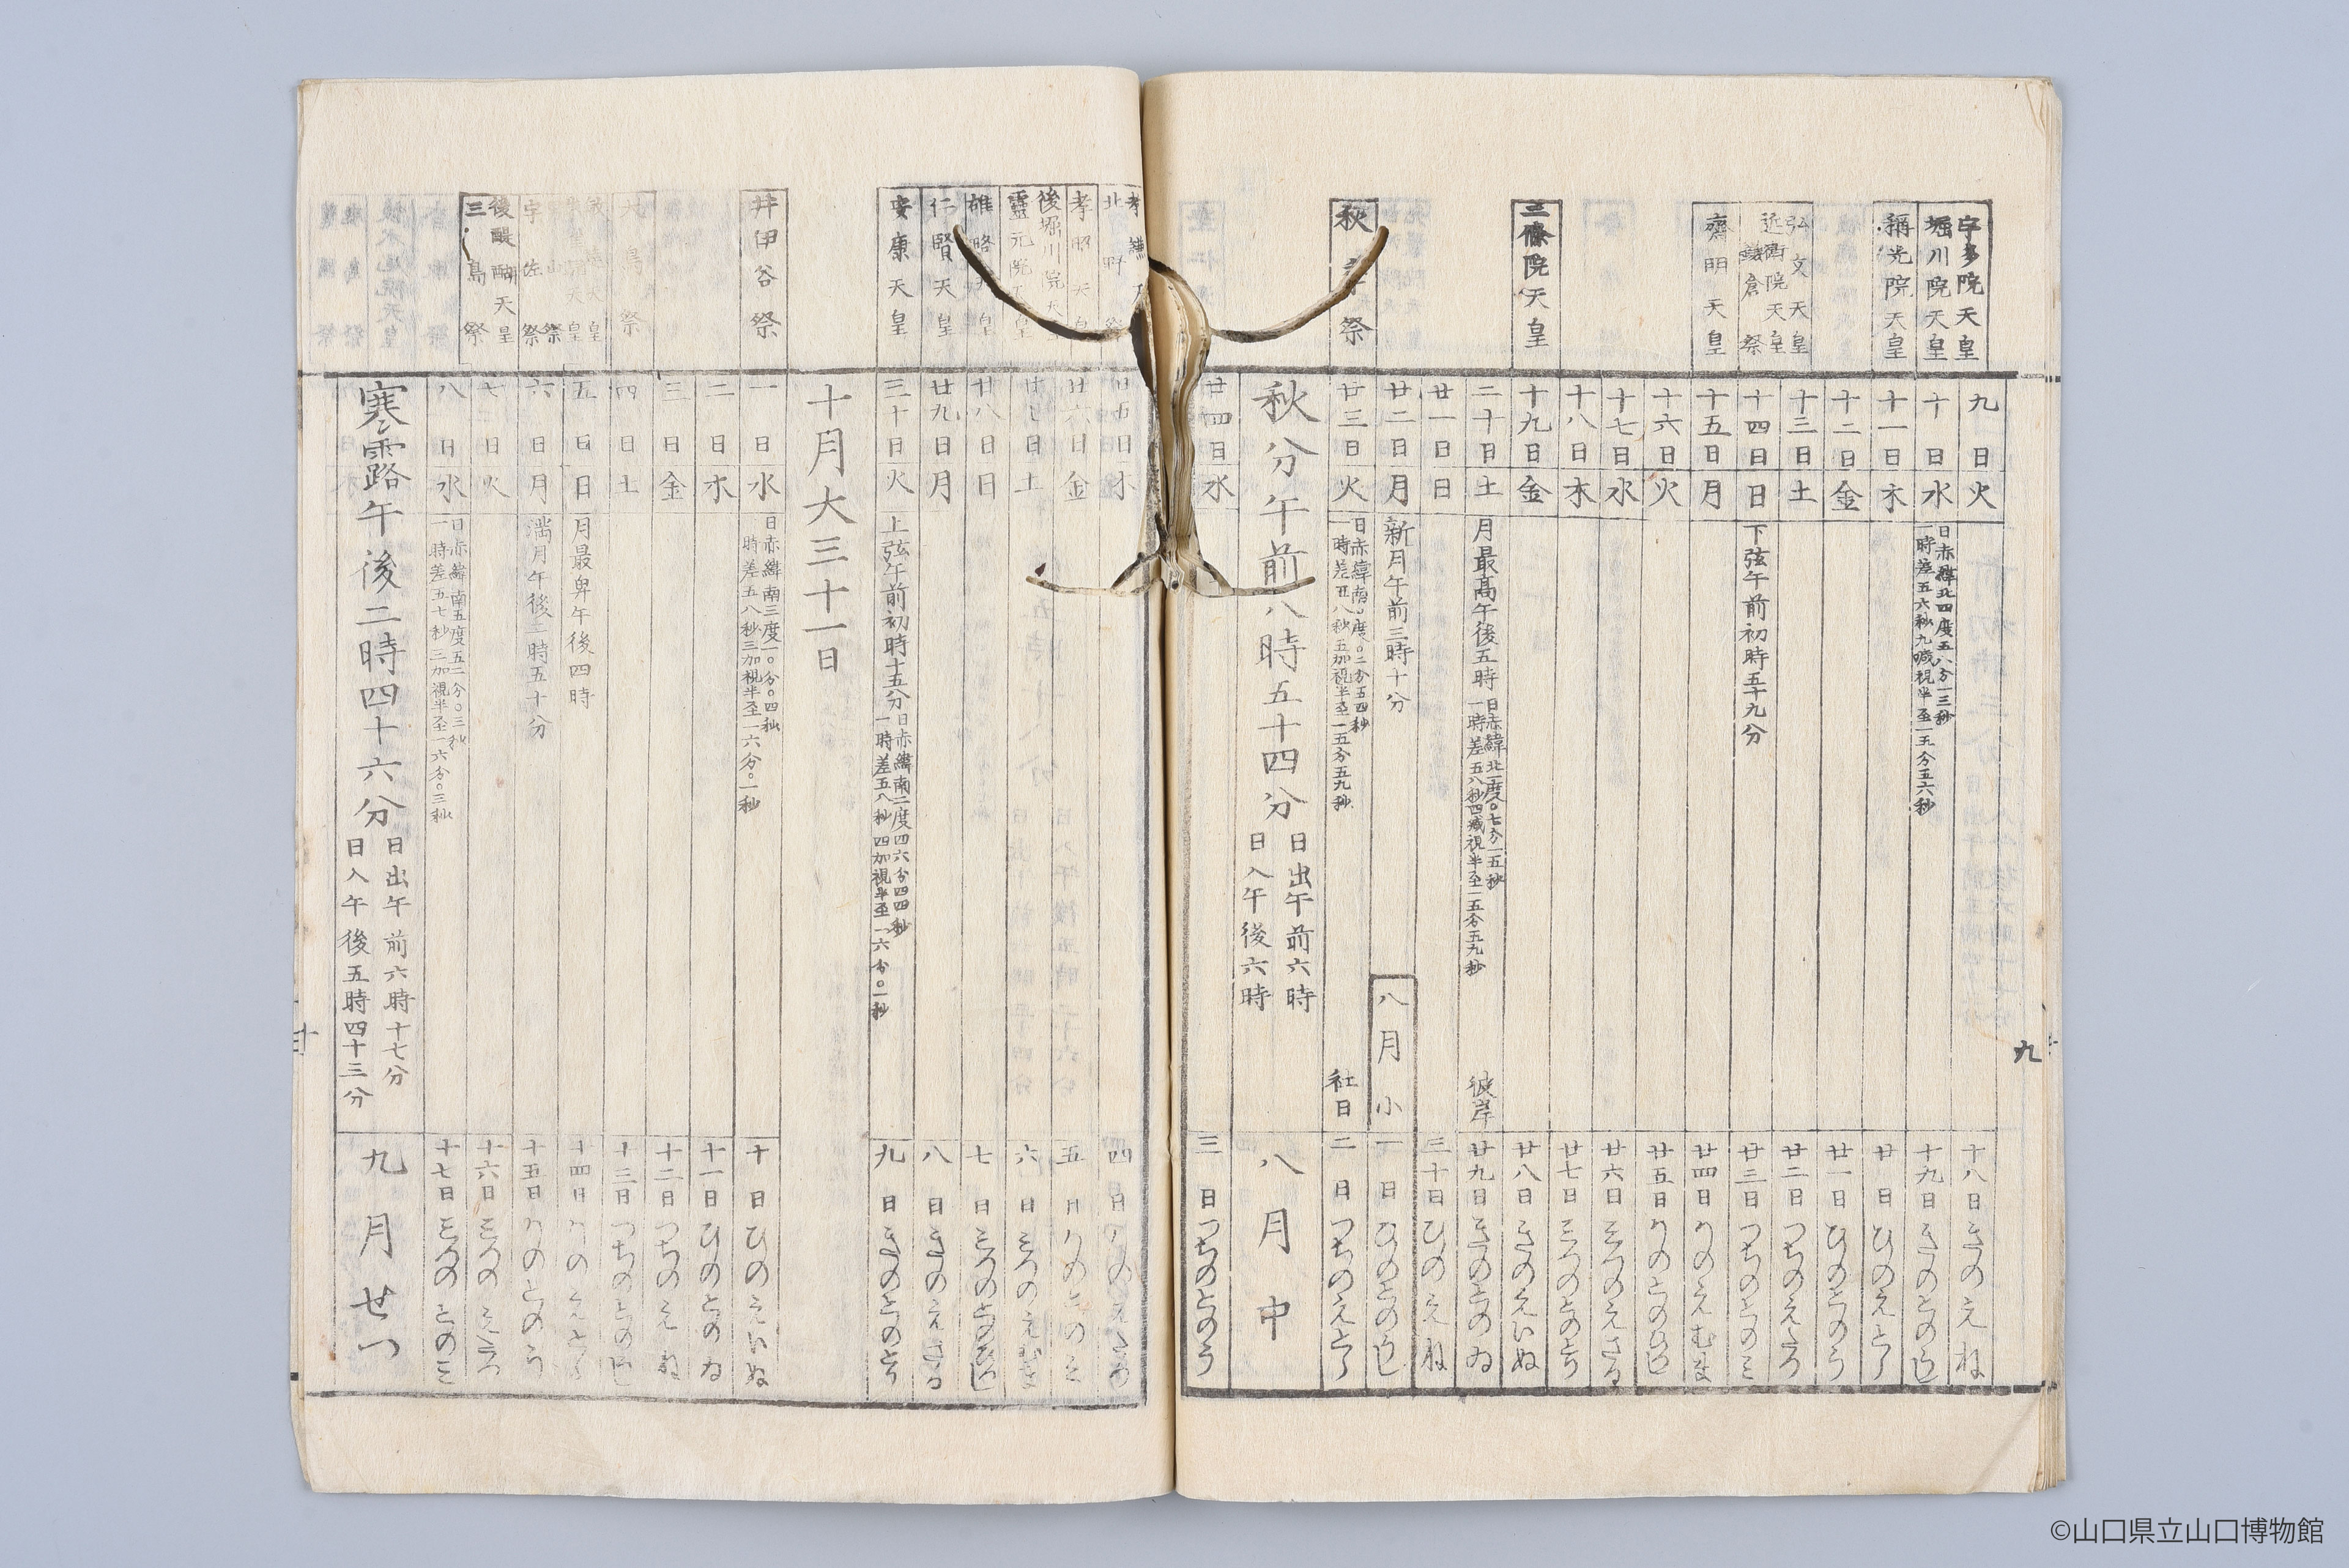 宇多院天皇
九日火
十八日きのえね
堀川院天皇
十日水
日赤緯北四度五八分一三秒
一時差五六秒九減視半至一五分五六秒
十九日きのとのうし
稱光院天皇
十一日木
廿日ひのえとら
十二日金
廿一日ひのとのう
十三日土
廿二日つちのえたつ
弘文天皇
近衛院天皇
鎌倉祭
十四日日
下弦午前初時五十九分
廿三日つちのとのミ
齊明天皇
十五日月
廿四日かのえむま
十六日火
廿五日かのとのひつし
十七日水
廿六日ミつのえさる
十八日木
廿七日ミつのとのとり
三條院天皇
十九日金
廿八日きのえいぬ
二十日土
月最高午後五時
日赤緯北一度〇七分一五秒
一時差五八秒四減視半至一五分五九秒
彼岸
廿九日きのとのゐ
廿一日日
三十日ひのえね
廿二日月
新月午前三時十分
八月小
一日ひのとのうし
秋 祭
廿三日火
日赤緯南〇度〇二分五四秒
一時差五八秒五加視半至一五分五九秒
社日
二日つちのえとら
秋分午前八時五十四分
日出午前六時
日入午後六時
八月中
廿四日水
三日つちのとのう
九
北野祭
廿五日木
四日かのえたつ
孝昭天皇
廿六日金
五日かのとのミ
後堀川院天皇
靈元院天皇
廿七日土
六日ミつのえむま
雄略天皇
廿八日日
七日ミつのとのひつし
仁賢天皇
廿九日月
八日きのえさる
安康天皇
三十日火
上弦午前初時十五分
日赤緯南二度四六分四四秒
一時差五八秒四加視半至一六分〇一秒
九日きのとのとり
十月大三十一日
井伊谷祭
一日水
日赤緯南三度一〇分〇四秒
一時差五八秒三加視半至一六分〇一秒
十日ひのえいぬ
二日木
十一日ひのとのゐ
三日金
十二日つちのえね
大鳥祭
四日土
十三日つちのとのうし
五日日
月最卑午後四時
十四日かのえとら
宇佐祭
六日月
満月午後三時五十分
十五日かのとのう
後醍醐天皇
七日火
十六日ミつのえたつ
三島祭
八日水
日赤緯南五度五二分〇三秒
一時差五七秒三加視半至一六分〇三秒
十七日ミつのとのミ
寒露午後二時四十六分
日出午前六時十七分
日入午後五時四十三分
九月せつ
©山口県立山口博物館